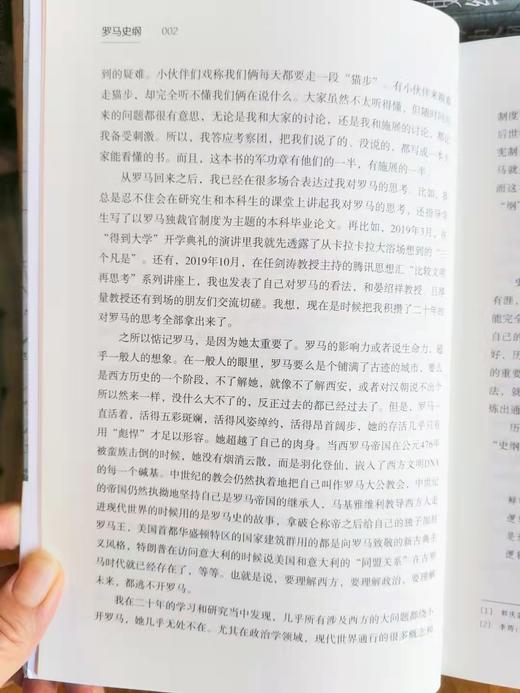 罗马史纲 002
到的疑难。小伙伴们戏称我们俩每天都要走一段“猫步”。有小伙伴来
走猫步，却完全听不懂我们俩在说什么。大家虽然不太听得懂，但随时
来的问题都很有意思，无论是我和大家的讨论，还是我和施展的讨论，都
我备受刺激。所以，我答应考察团，把我们说了的、没说的，都写成一本
家能看懂的书。而且，这本书的军功章有他们的一半，有施展的一半。
从罗马回来之后，我已经在很多场合表达过我对罗马的思考。比如，
总是忍不住会在研究生和本科生的课堂上讲起我对罗马的思考，还指导
生写了以罗马独裁官制度为主题的本科毕业论文。再比如，2019年3月，在
“得到大学”开学典礼的演讲里我就先透露了从卡拉卡拉大浴场想到的“三
个凡是”。还有，2019年10月，在任剑涛教授主持的腾讯思想汇“比较文明
再思考”系列讲座上，我也发表了自己对罗马的看法，和晏绍祥教授、吕厚
量教授还有到场的朋友们交流切磋。我想，现在是时候把我积攒了二十年的
对罗马的思考全部拿出来了。
之所以惦记罗马，是因为她太重要了。罗马的影响力或者说生命力，超
乎一般人的想象。在一般人的眼里，罗马要么是个铺满了古迹的城市，要么
是西方历史的一个阶段，不了解她，就像不了解西安，或者对汉朝说不出个
所以然来一样，没什么大不了的，反正过去的都已经过去了。但是，罗马一
直活着，活得五彩斑斓，活得风姿绰约，活得昂首阔步，她的存活几乎只有
用“彪悍”才足以形容。她超越了自己的肉身。当西罗马帝国在公元476年
被蛮族击倒的时候，她没有烟消云散，而是羽化登仙，嵌入了西方文明DNA
的每一个碱基。中世纪的教会仍然执着地把自己叫作罗马大公教会，中世纪
的帝国仍然执拗地坚持自己是罗马帝国的继承人，马基雅维利教导西方人走
进现代世界的时候用的是罗马史的故事，拿破仑称帝之后给自己的独子加封
罗马王，美国首都华盛顿特区的国家建筑群用的都是向罗马致敬的新古典主
义风格，特朗普在访问意大利的时候说美国和意大利的“同盟关系”在古罗
马时代就已经存在了，等等。也就是说，要理解西方，要理解政治，要理解
未来，都逃不开罗马。
我在二十年的学习和研究当中发现，几乎所有涉及西方的大问题都绕不
开罗马，她几乎无处不在。尤其在政治学领域，现代世界通行的很多概念和
制度
后世
宪制
马就
纲”
有涯
能完全
自己的
的重要
想，
炼出通
历
“史纲